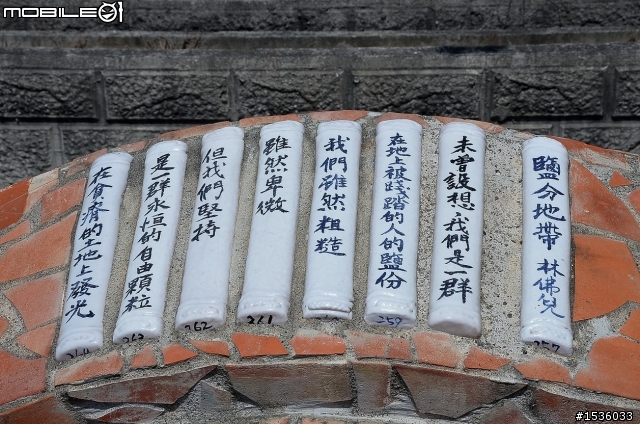 MOBILE01
鹽分地帶 林佛兒
257
未曾設想,我們是一群
在地上被踐踏的人的鹽份
259
我們雖然粗造
雖然卑微
261
但我們堅持
262
是一群永恒的自由顆粒
263
在貧瘠的土地上發光
264
#1536033